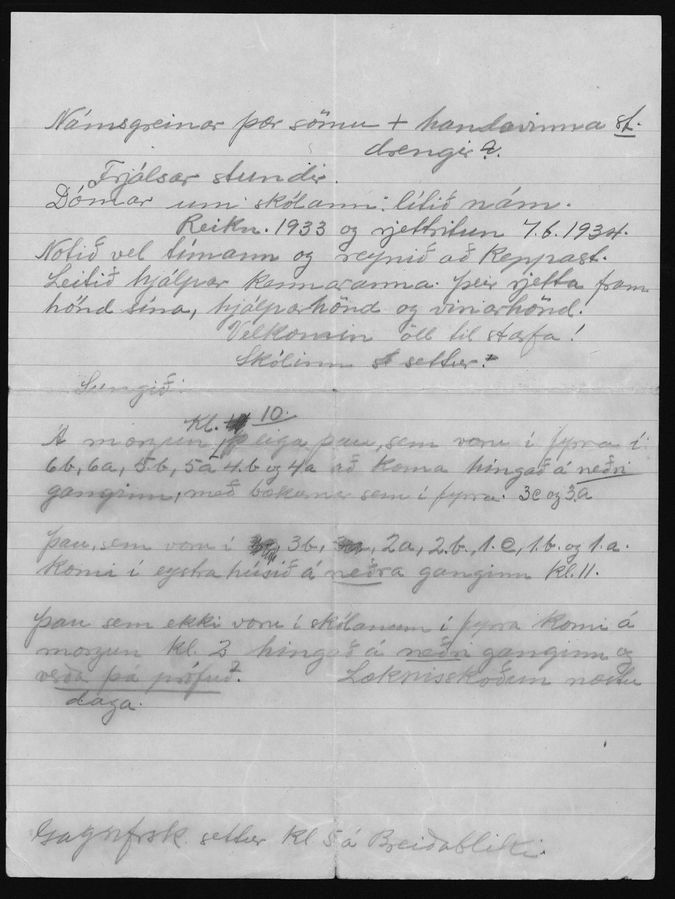 Námsgreinar þær sömu + handavinna st.
drengir?.
Frjálsar stundir.
Dómar um skólann: lítið nám.
Reikn. 1933 og rjettritun 7.6.1934.
Notið vel tímann og reynið að keppast.
Leitið hjálpar kennaranna. Þeir rjetta fram
hönd sína, hjálparhönd og vinarhönd.
Velkomin öll til starfa!
Skólinn settur.
Sungið:
Kl. 10.
Á morgun eiga þau, sem voru í fyrra í
6b, 6a, 5b, 5a 4.b og 4a að koma hingað á neðri
ganginn, með bækur sem í fyrra. 3c og 3.a
Þau, sem voru í 3b, 2a, 2.b, 1.c, 1.b. og 1.a.
komi í eystra húsið á neðra ganginn kl. 11.
Þau sem ekki voru í skólanum í fyrra komi á
morgun kl. 2 hingað á neðri ganginn og
verða þá prófuð. Læknisskoðun næstu
daga.
Gagnfrsk. settur kl 5 á Breiðabliki.